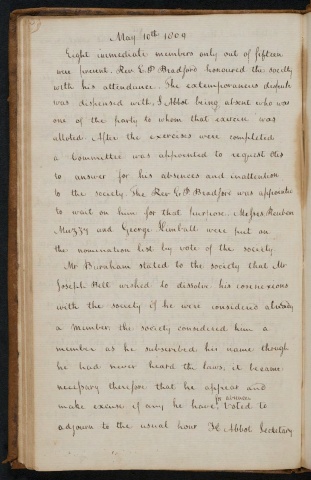 May 10th 1809
Eight immediate members only out of fifteen
were present. Rev. E. P. Bradford honoured the society
with his attendance. The extemporaneous dispute
was dispensed with, J Abbot being absent who was
one of the party to whom that exercise was
alloted After the exercises were completed
a Committee was appointed to request Otis
to answer for his absences and inattention
to the society. The Rev. E. P. Bradford was appointed
to wait on him for that purpose. Messrs. Reuben
Muzzy and George Kimball were put on
the nomination list by vote of the society.
Mr Burnham stated to the society that Mr
Joseph Bell wished to dissolve his connexions
with the society if he were considered already
a member. the society considered him a
member as he subscribed his name though
he had never heard the laws, it became
necessary therefore that he appear and
make excuse if any he have, for absence Voted to
adjourn to the usual hour Abbot Secretary